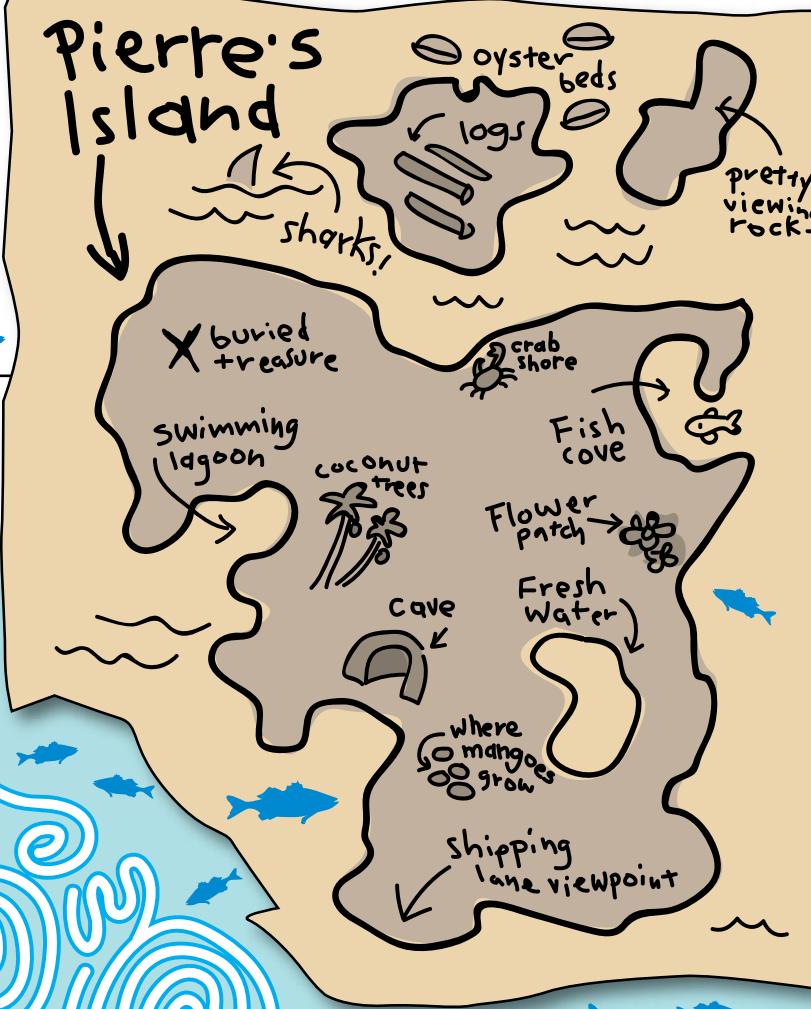 Pierre's
Island
oyster
beds
logs
pretty
viewin
rock
sharks!
buried
treasure
crab
shore
swimming
lagoon
Fish
cove
coconut
trees
Flower
patch
Fresh
water
cave
where
mangoes
grow
shipping
lane viewpoint